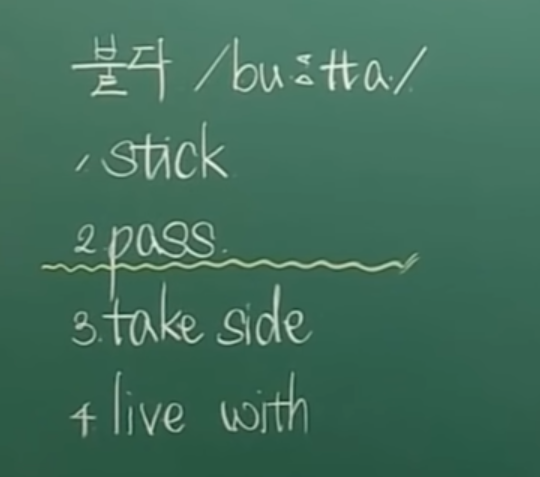 붙다 /buːtta/
1 stick
2.pass.
3.take side
4 live with